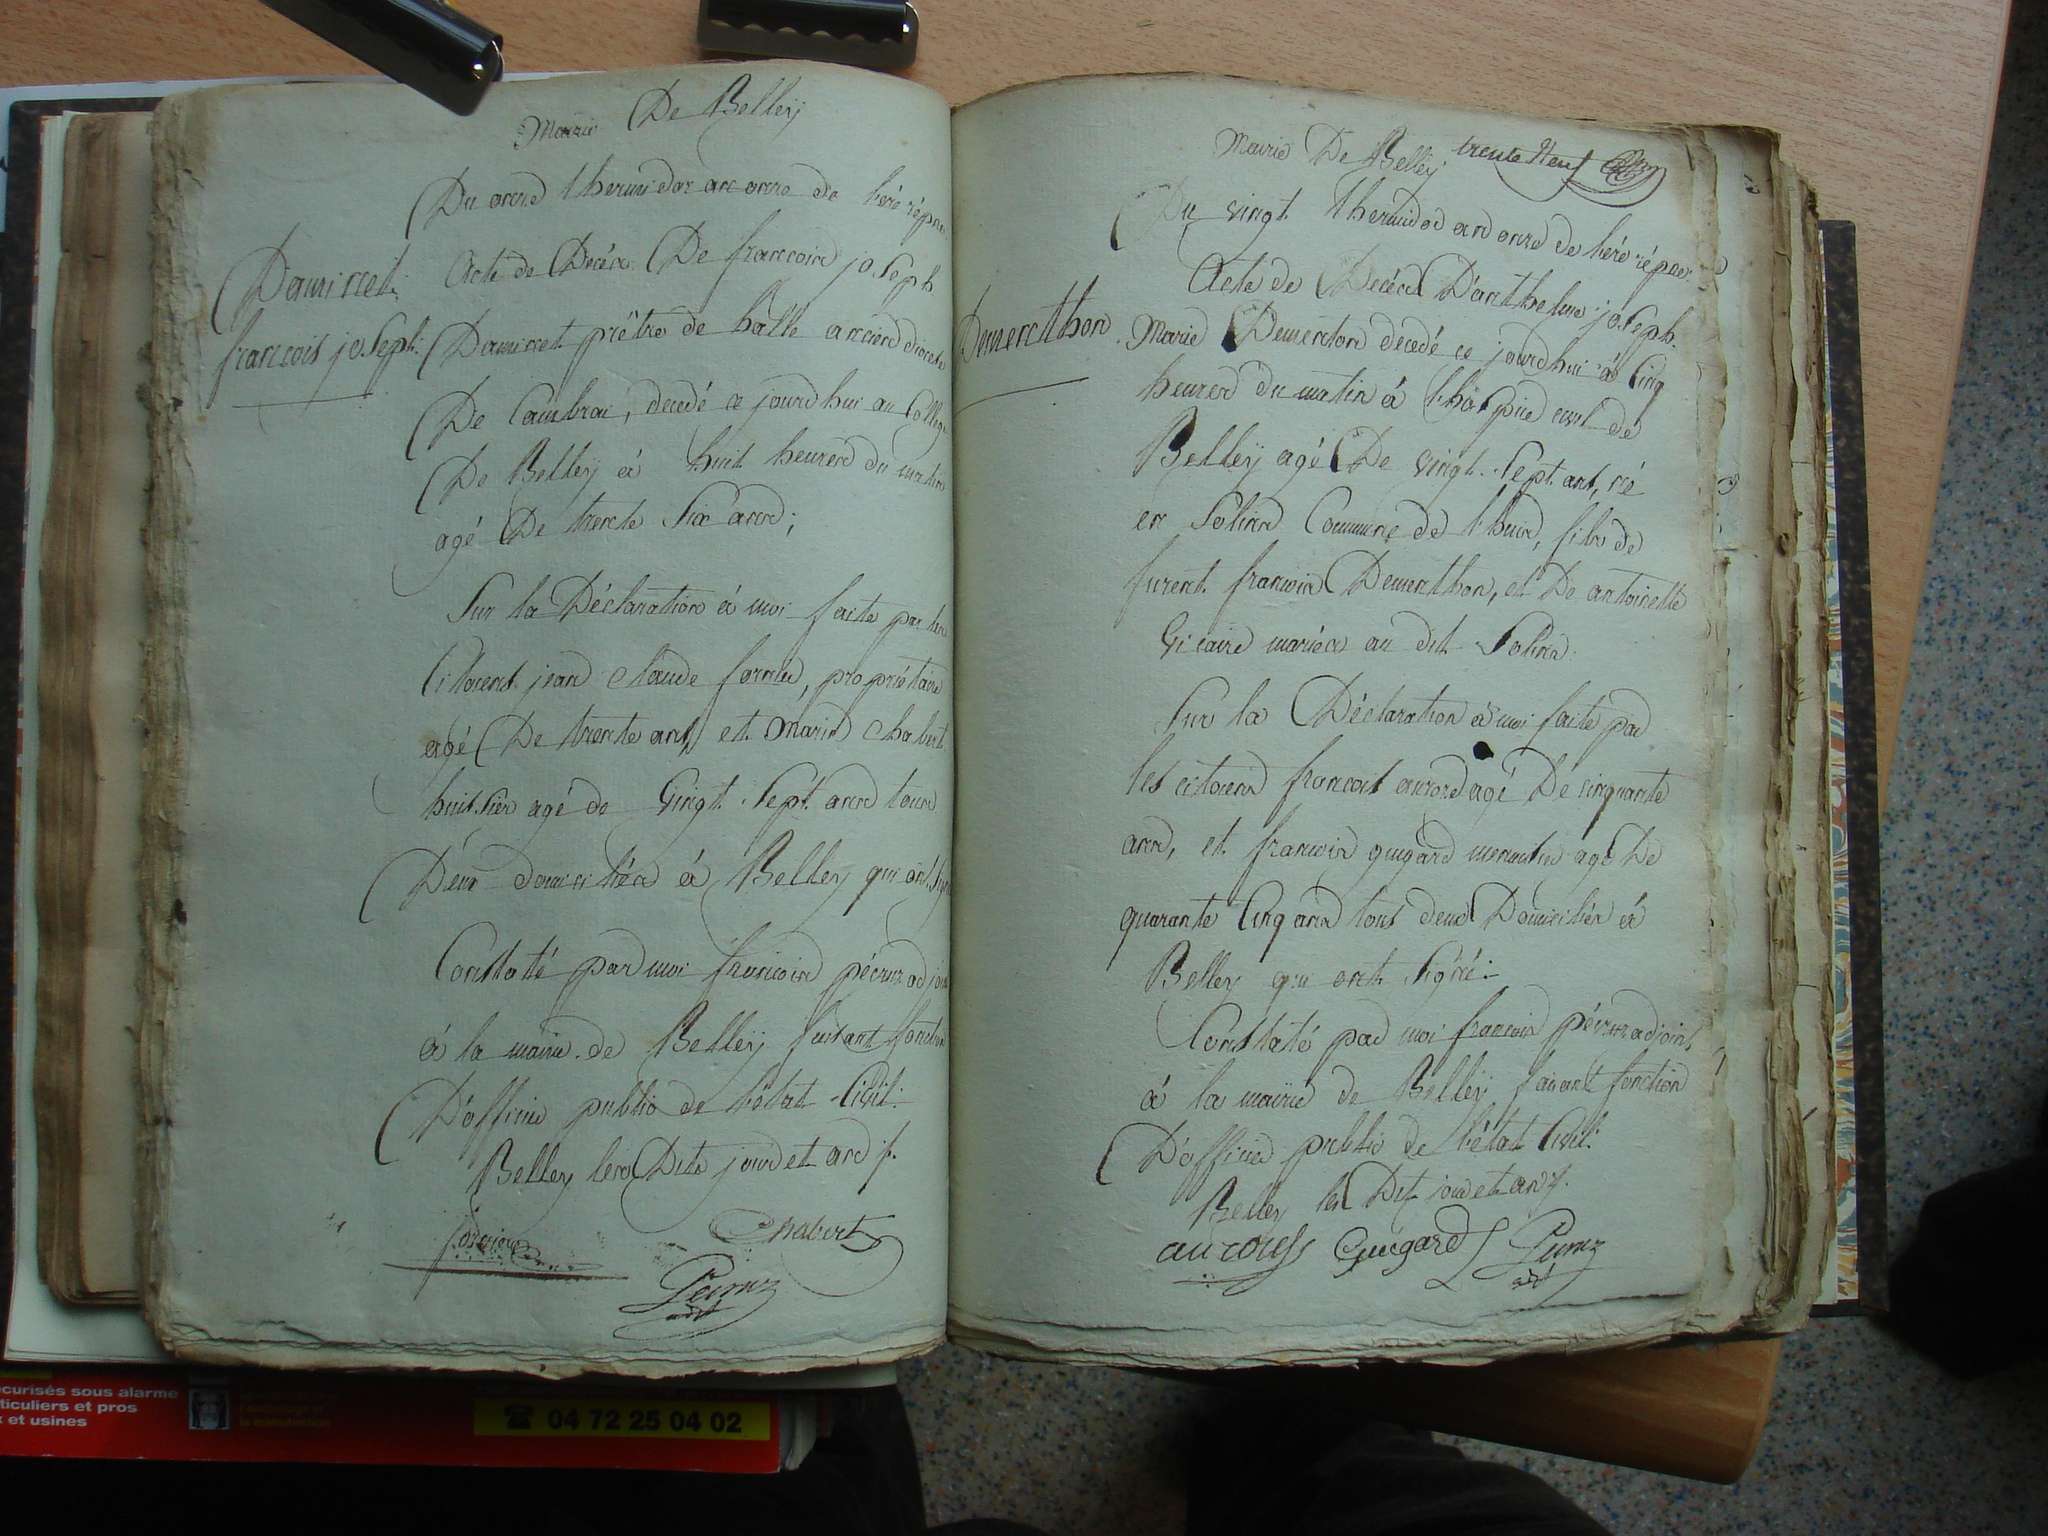 Mairie De Belleÿ
Du onze thermidor an onze de l'ére répu
Acte de Décéa De francoia joseph
Daminet
francois joseph
Daminet prêtre de halle ancien diocese
De Cambrai, decedé ce jourdhui au Collège
De Belleÿ à huit heures du matin
agé De trente Six ans;
Sur la Déclaration à moi faite par les
Citoiens jean Claude fornier, propriétaire
agé De trente ans, et Marin Chabert
huissier agé de Vingt Sept ans tous
Deux domiciliés à Belley qui ont Signé
Constaté par moi francois adjoint
à la mairie de Belleÿ faisant fonction
D'officier public de l'état Civil.
Belley les Dits jour et an
fornier Chabert
Mairie De Belleÿ trente Neuf
Du vingt thermidor an onze de l'ére répu
Acte de Décéa D'anthelme joseph
Dementhon
Marie Dementon décedé ce jourdhui à Cinq
heures du matin à l'hospice civil de
Belleÿ agé De vingt Sept ans, né
en Solins Commune de thuis, fils de
furent francois Dementhon, et De antoinette
Vicaire mariés au dit Solins
Sur la Déclaration à moi faite par
les citoiens francois agé De cinquante
ans, et francois guigard menusier agé De
quarante Cinq ans tous deux Domiciliés à
Belley qui ont Signé
Constaté par moi francois adjoint
à la mairie de Belleÿ faisant fonction
D'officier public de l'état Civil.
Belley les Dit jour et an
Guigard
curisés sous alarme
ticuliers et pros
x et usines
04 72 25 04 02